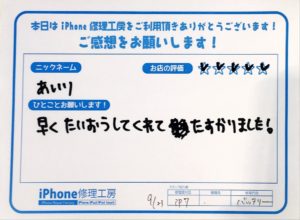 本日は iPhone 修理工房をご利用頂きありがとうございます!
ご感想をお願いします!
ニックネーム
お店の評価
あいり
ひとことお願いします!
早く たいおうしてくれて たすかりました!
iPhone修理工房
9/21
iP7
バッテリー